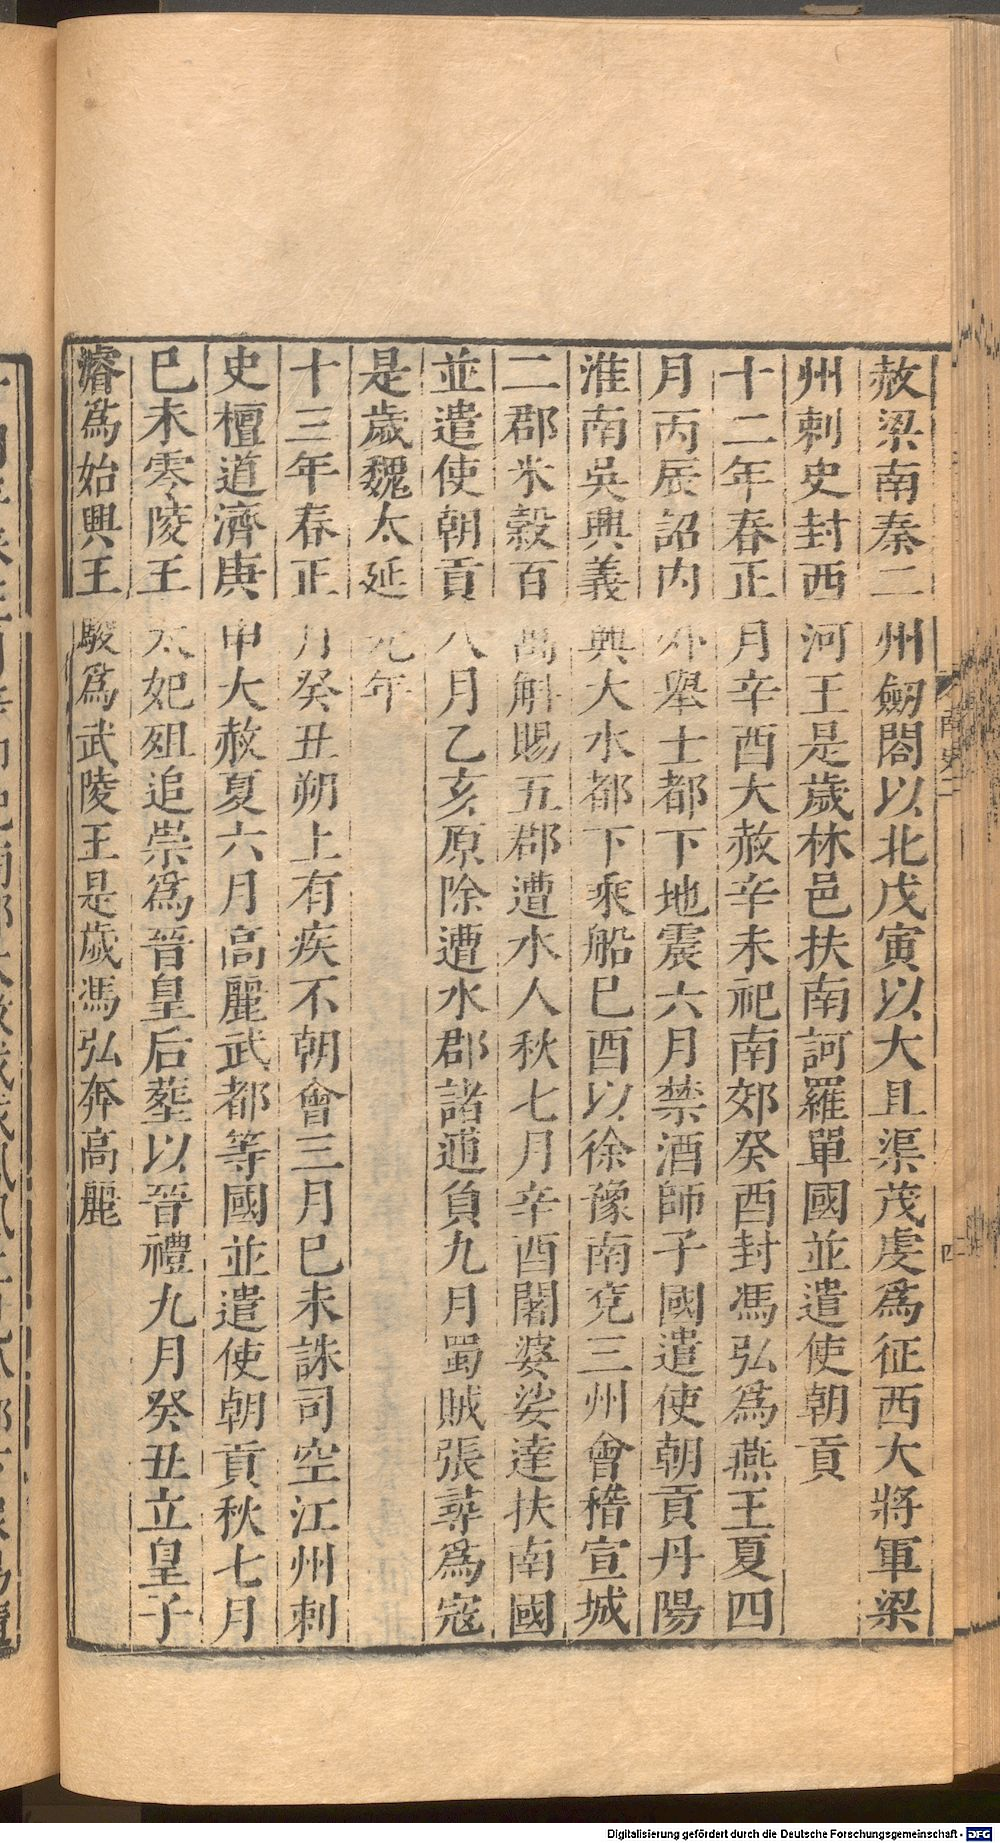 赦梁南秦二州劒閣以北戊寅以大且渠茂虔爲征西大將軍梁
州刺史封西河王是歲林邑扶南訶羅單國並遣使朝貢
十二年春正月辛酉大赦辛未祀南郊癸酉封馮弘爲燕王夏四
月丙辰詔內外舉士都下地震六月禁酒師子國遣使朝貢丹陽
淮南吳興義興大水都下乘船巳酉以徐豫南兖三州會稽宣城
二郡米穀百萬斛賜五郡遭水人秋七月辛酉闍婆娑達扶南國
並遣使朝貢八月乙亥原除遭水郡諸逋負九月蜀賊張尋爲寇
是歲魏太延元年
十三年春正月癸丑朔上有疾不朝會三月巳未誅司空江州刺
史檀道濟庚申大赦夏六月高麗武都等國並遣使朝貢秋七月
巳未零陵王太妃殂追崇爲晉皇后葬以晉禮九月癸丑立皇子
濬爲始興王駿爲武陵王是歲馮弘奔高麗
南史二
四
Digitalisierung gefördert durch die Deutsche Forschungsgemeinschaft - DFG